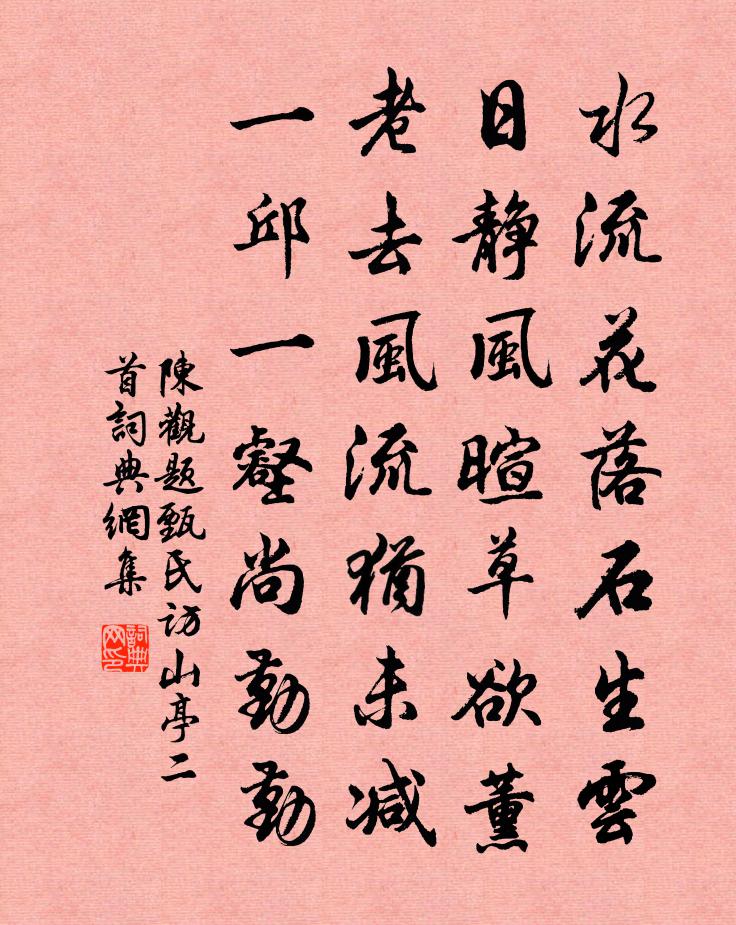 水流花落石生雲
日静風暄草欲薫
老去風流猶未减
一邱一壑尚勤勤
陳觀题甄氏访山亭二
首詞典網集
詞典网印